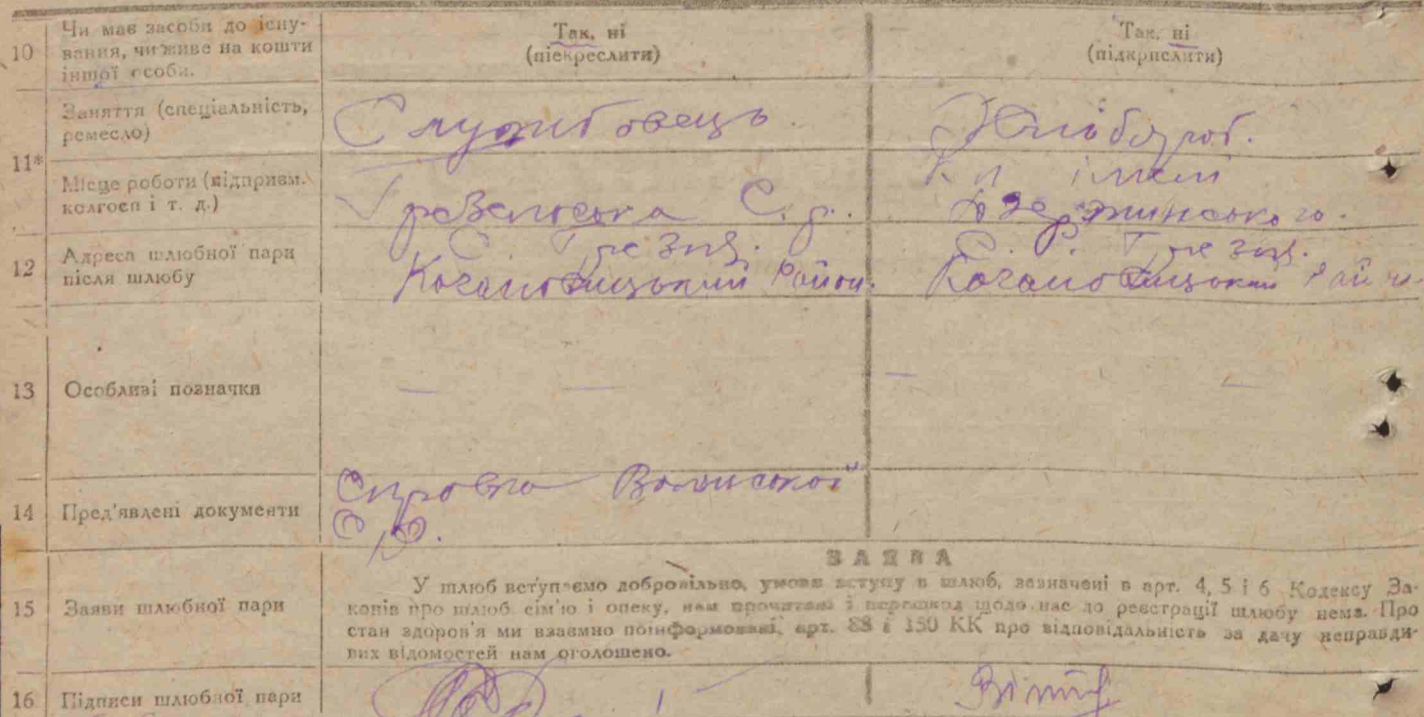 10 Чи має засоби до існу-
вання, чи живе на кошти
іншої особи.
Так, ні
(піекреслити)
Так, ні
(підкрислити)
11*
Заняття (спеціальність,
ремесло)
Службовець.
Хліборуб.
Місце роботи (підприєм.
колгосп і т. д.)
С. р.
імені
Дзержинського.
12 Адреса шлюбної пари
після шлюбу
С.
Район.
13 Особливі позначки
— —
— —
14 Пред'явлені документи
Справка
С/Р.
15 Заяви шлюбної пари
ЗАЯВА
У шлюб вступаємо добровільно, умови вступу в шлюб, зазначені в арт. 4, 5 і 6 Кодексу За-
конів про шлюб сім'ю і опеку, нам прочитані і перешкод щодо нас до реєстрації шлюбу нема. Про
стан здоров'я ми взаємно поінформовані, арт. 88 і 150 КК про відповідальність за дачу неправди-
вих відомостей нам оголошено.
16 Підписи шлюбної пари